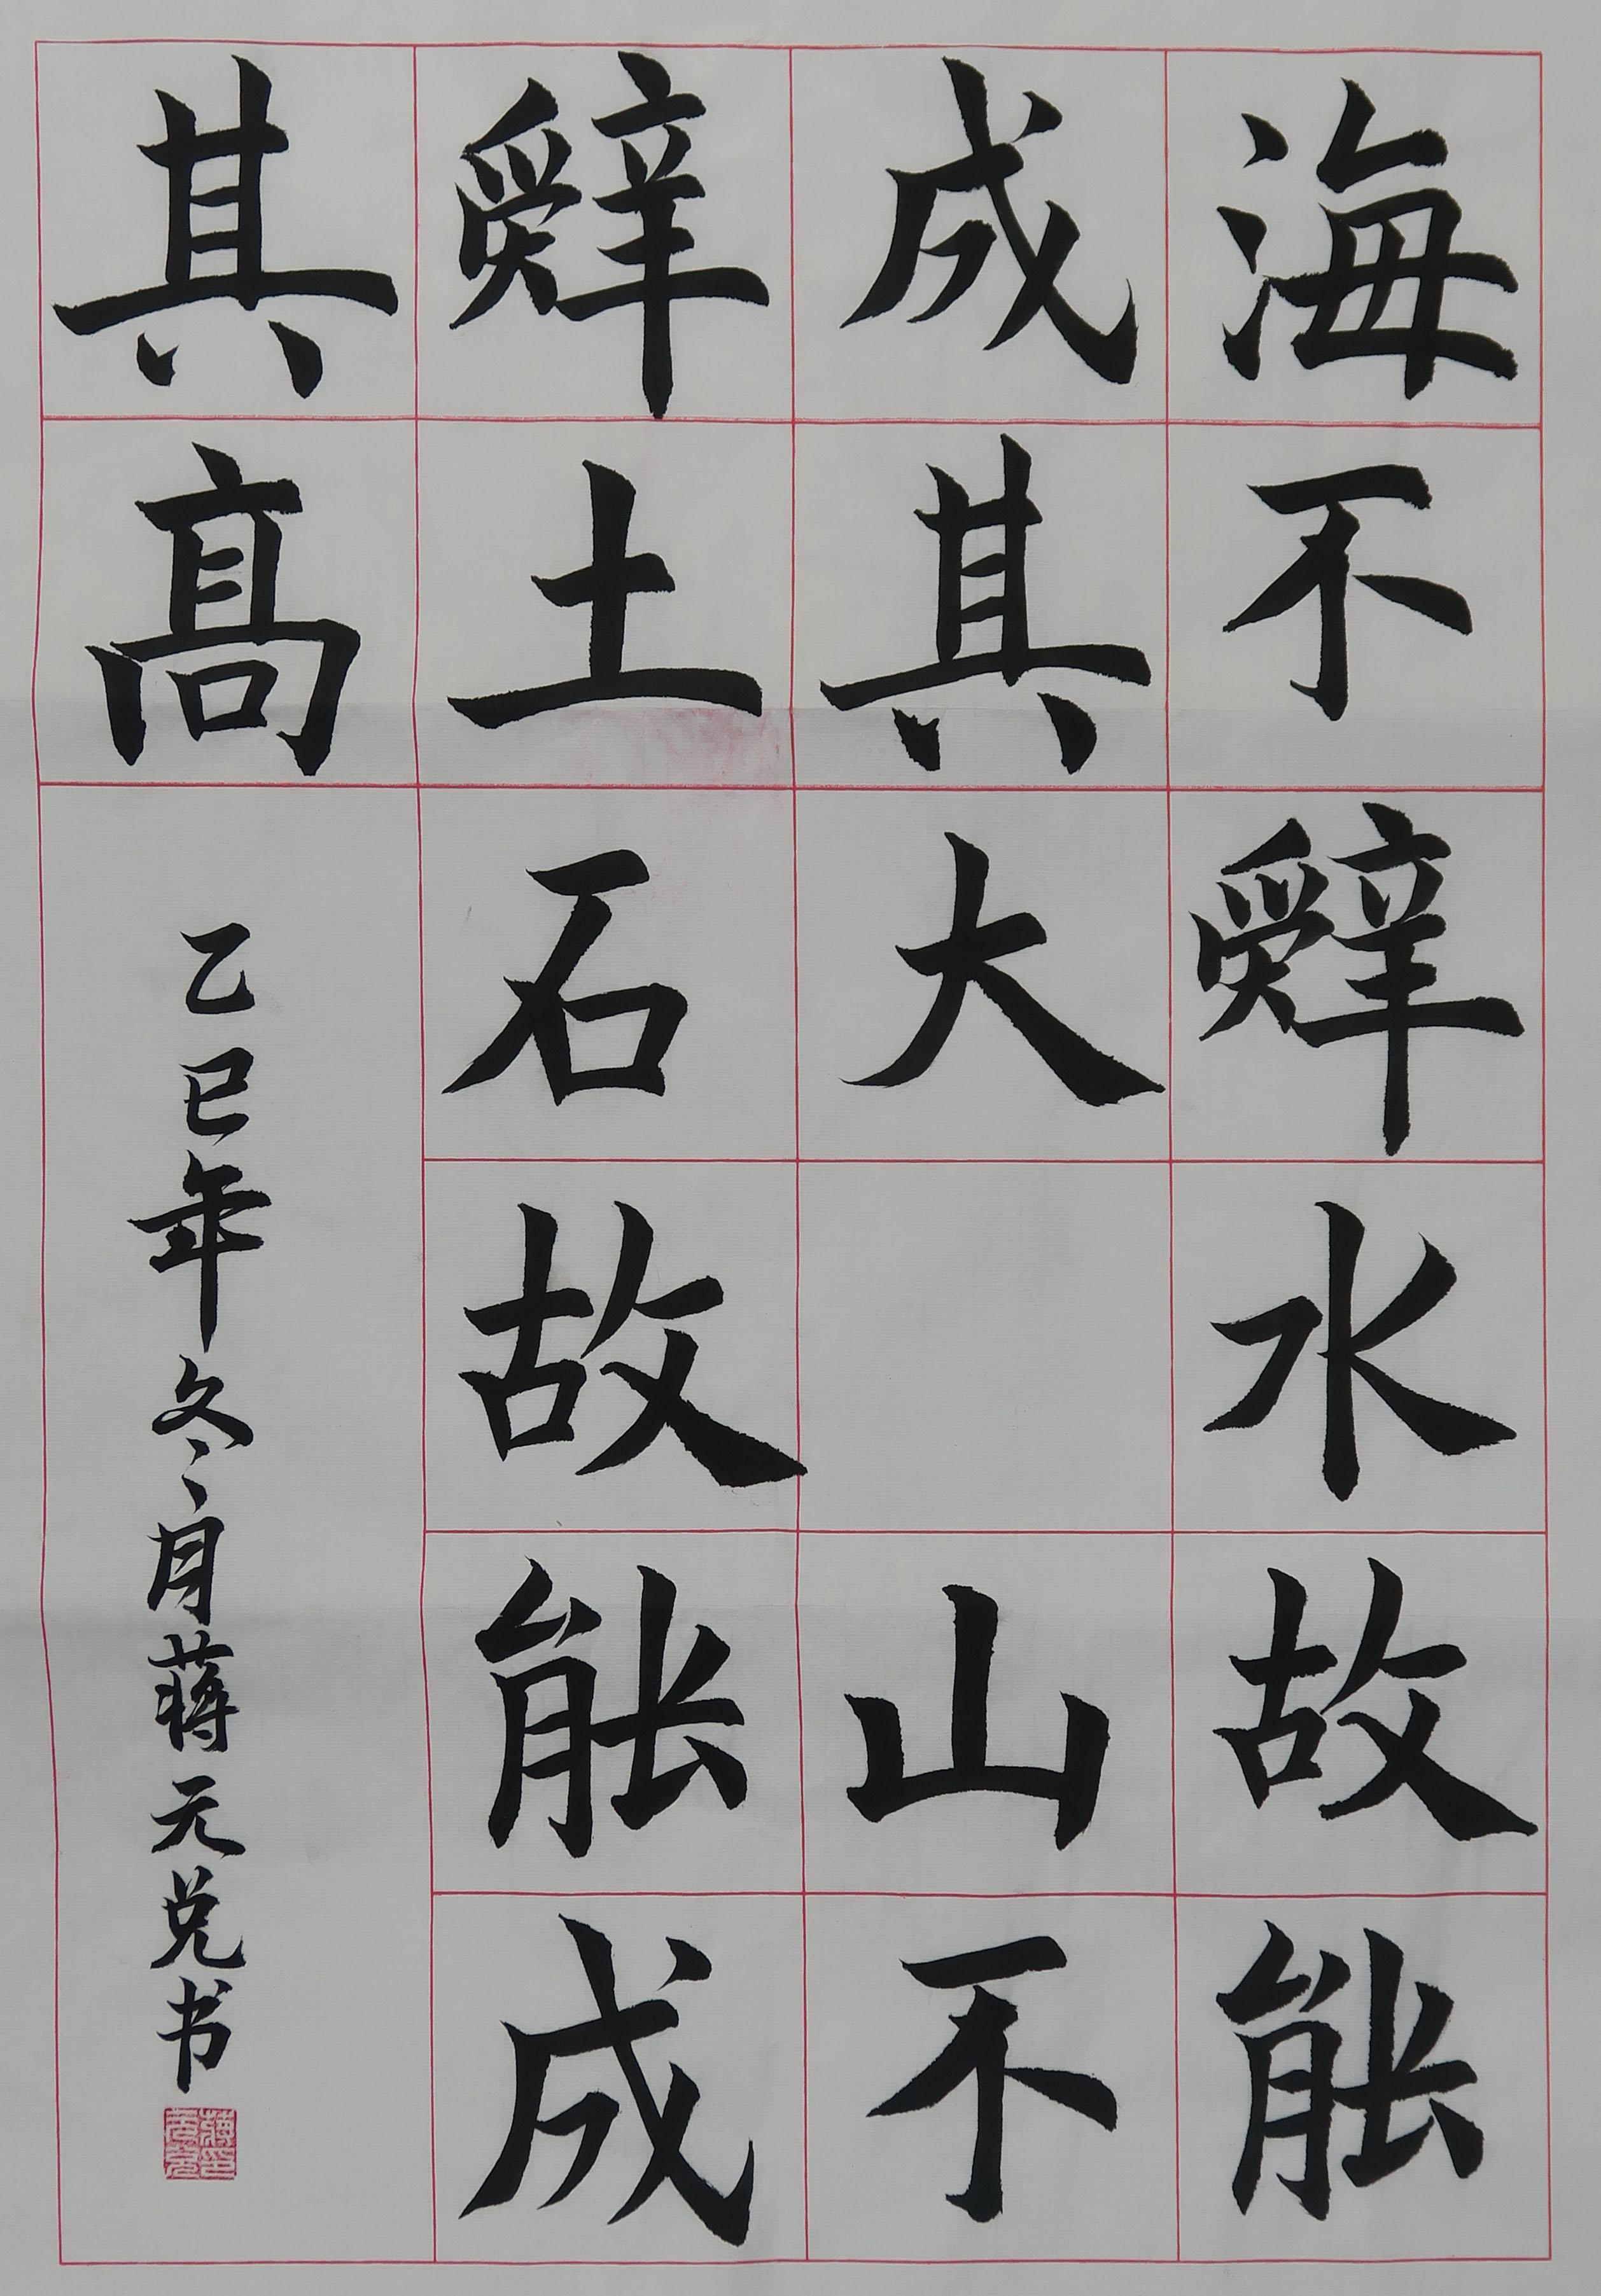 海不辤水故能
成其大 山不
辤土石故能成
其高
乙巳年冬月蒋元兑书